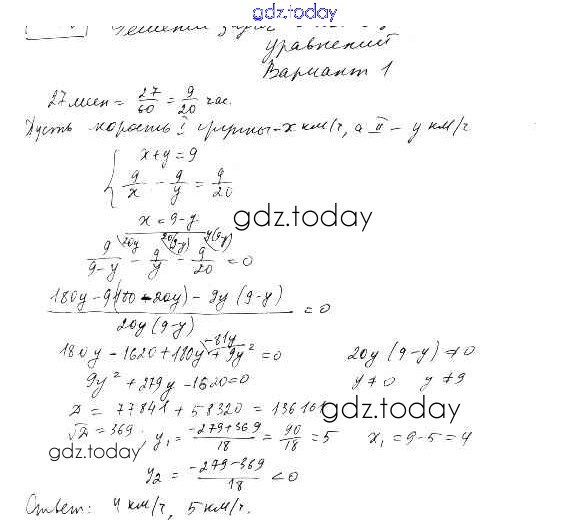 gdz.today
уравнений
Вариант 1
27 мин = 27/60 = 9/20 час.
Пусть корость I группы - x км/ч, а II - y км/ч
x+y=9
9/x - 9/y = 9/20
x=9-y
gdz.today
9/(9-y) - 9/y - 9/20 = 0
(180y - 9(180-20y) - 9y(9-y))/(20y(9-y)) = 0
-81y
180y - 1620 + 180y + 9y² = 0 20y(9-y)≠0
9y² + 279y - 1620 = 0 y≠0 y≠9
D = 77841 + 58320 = 136161
gdz.today
√D = 369 y₁ = (-279+369)/18 = 90/18 = 5 x₁ = 9-5 = 4
gdz.today
y₂ = (-279-369)/18 < 0
Ответ: 4 км/ч, 5 км/ч.